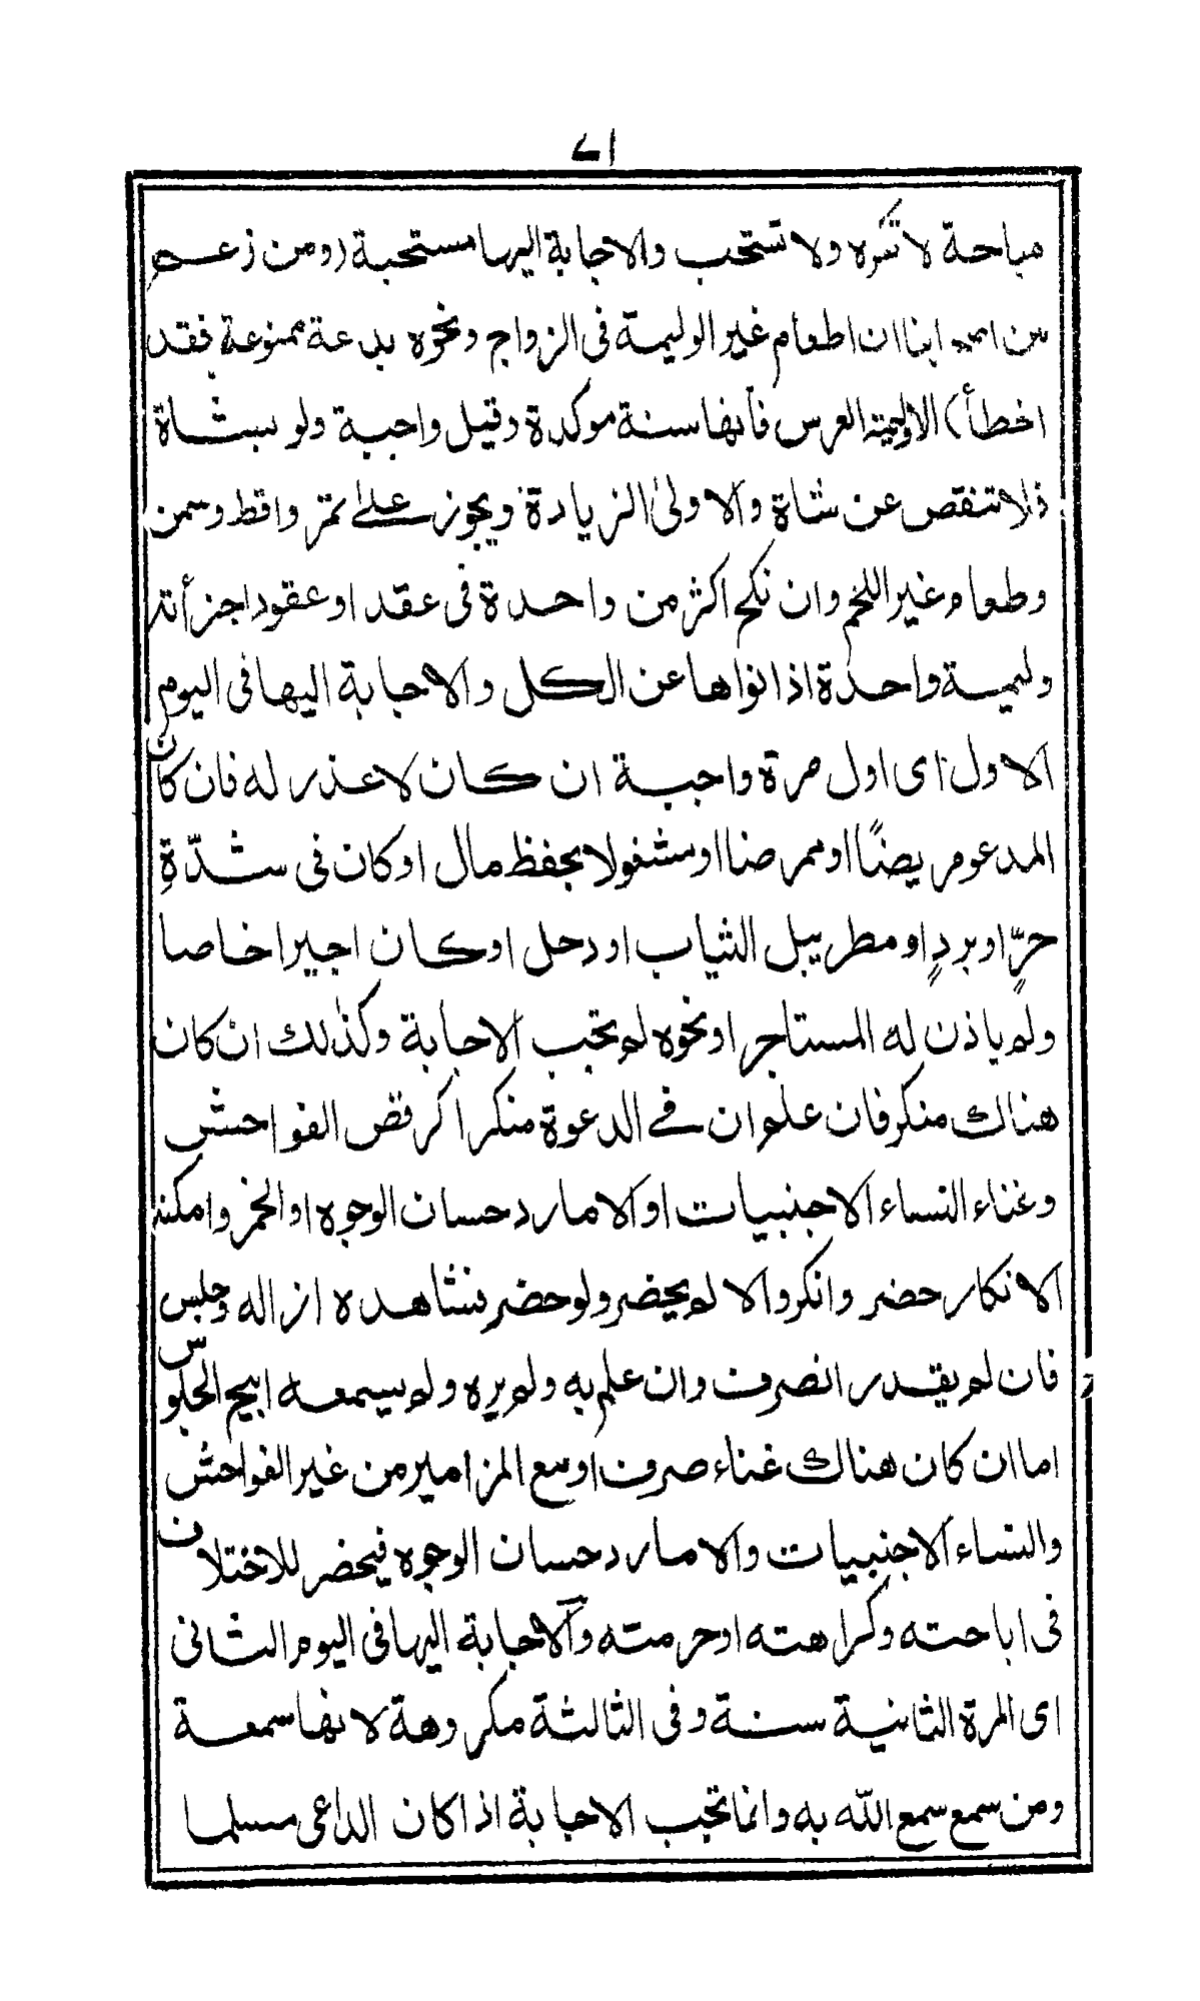 مباحة لا تكره ولا تستحب والاجابة اليها مستحبة (ومن زعم
من ابنا ان اطعام غير الوليمة فى الزواج ونحوه بدعة ممنوعة فقد
اخطأ) الا وليمة العرس فانها سنة موكدة وقيل واجبة ولو بشاة
فلا تنقص عن شاة والاولى الزيادة ويجوز على تمر واقط وسمن
وطعام غير اللحم وان نكح اكثر من واحدة فى عقد او عقود اجزأته
وليمة واحدة اذا نواها عن الكل والاجابة اليها فى اليوم
الاول اى اول مرة واجبة ان كان لا عذر له فان كان
المدعو مريضًا او ممرضا او مشغولا بحفظ مال او كان فى شدّةِ
حرٍّ او بردٍ او مطر يبل الثياب او دحل او كان اجيرا خاصا
ولم ياذن له المستاجر او نحوه لم تجب الاجابة وكذلك ان كان
هناك منكر فان علم ان فے الدعوة منكرا كرقص الفواحش
وغناء النساء الاجنبيات او الامارد حسان الوجوه او الخمر وامكنه
الانكار حضر وانكر والا لم يحضر ولو حضر فشاهده ازاله وجلس
فان لم يقدر انصرف وان علم به ولم يره ولم يسمعه ابيح الجلوس
اما ان كان هناك غناء صرف او سمع المزامير من غير الفواحش
والنساء الاجنبيات والامارد حسان الوجوه فيحضر للاختلان
فى اباحته وكراهته او حرمته والاجابة اليها فى اليوم الثانى
اى المرة الثانية سنة وفى الثالثة مكروهة لانها سمعة
ومن سمع سمع الله به وانما تجب الاجابة اذا كان الداعى مسلما